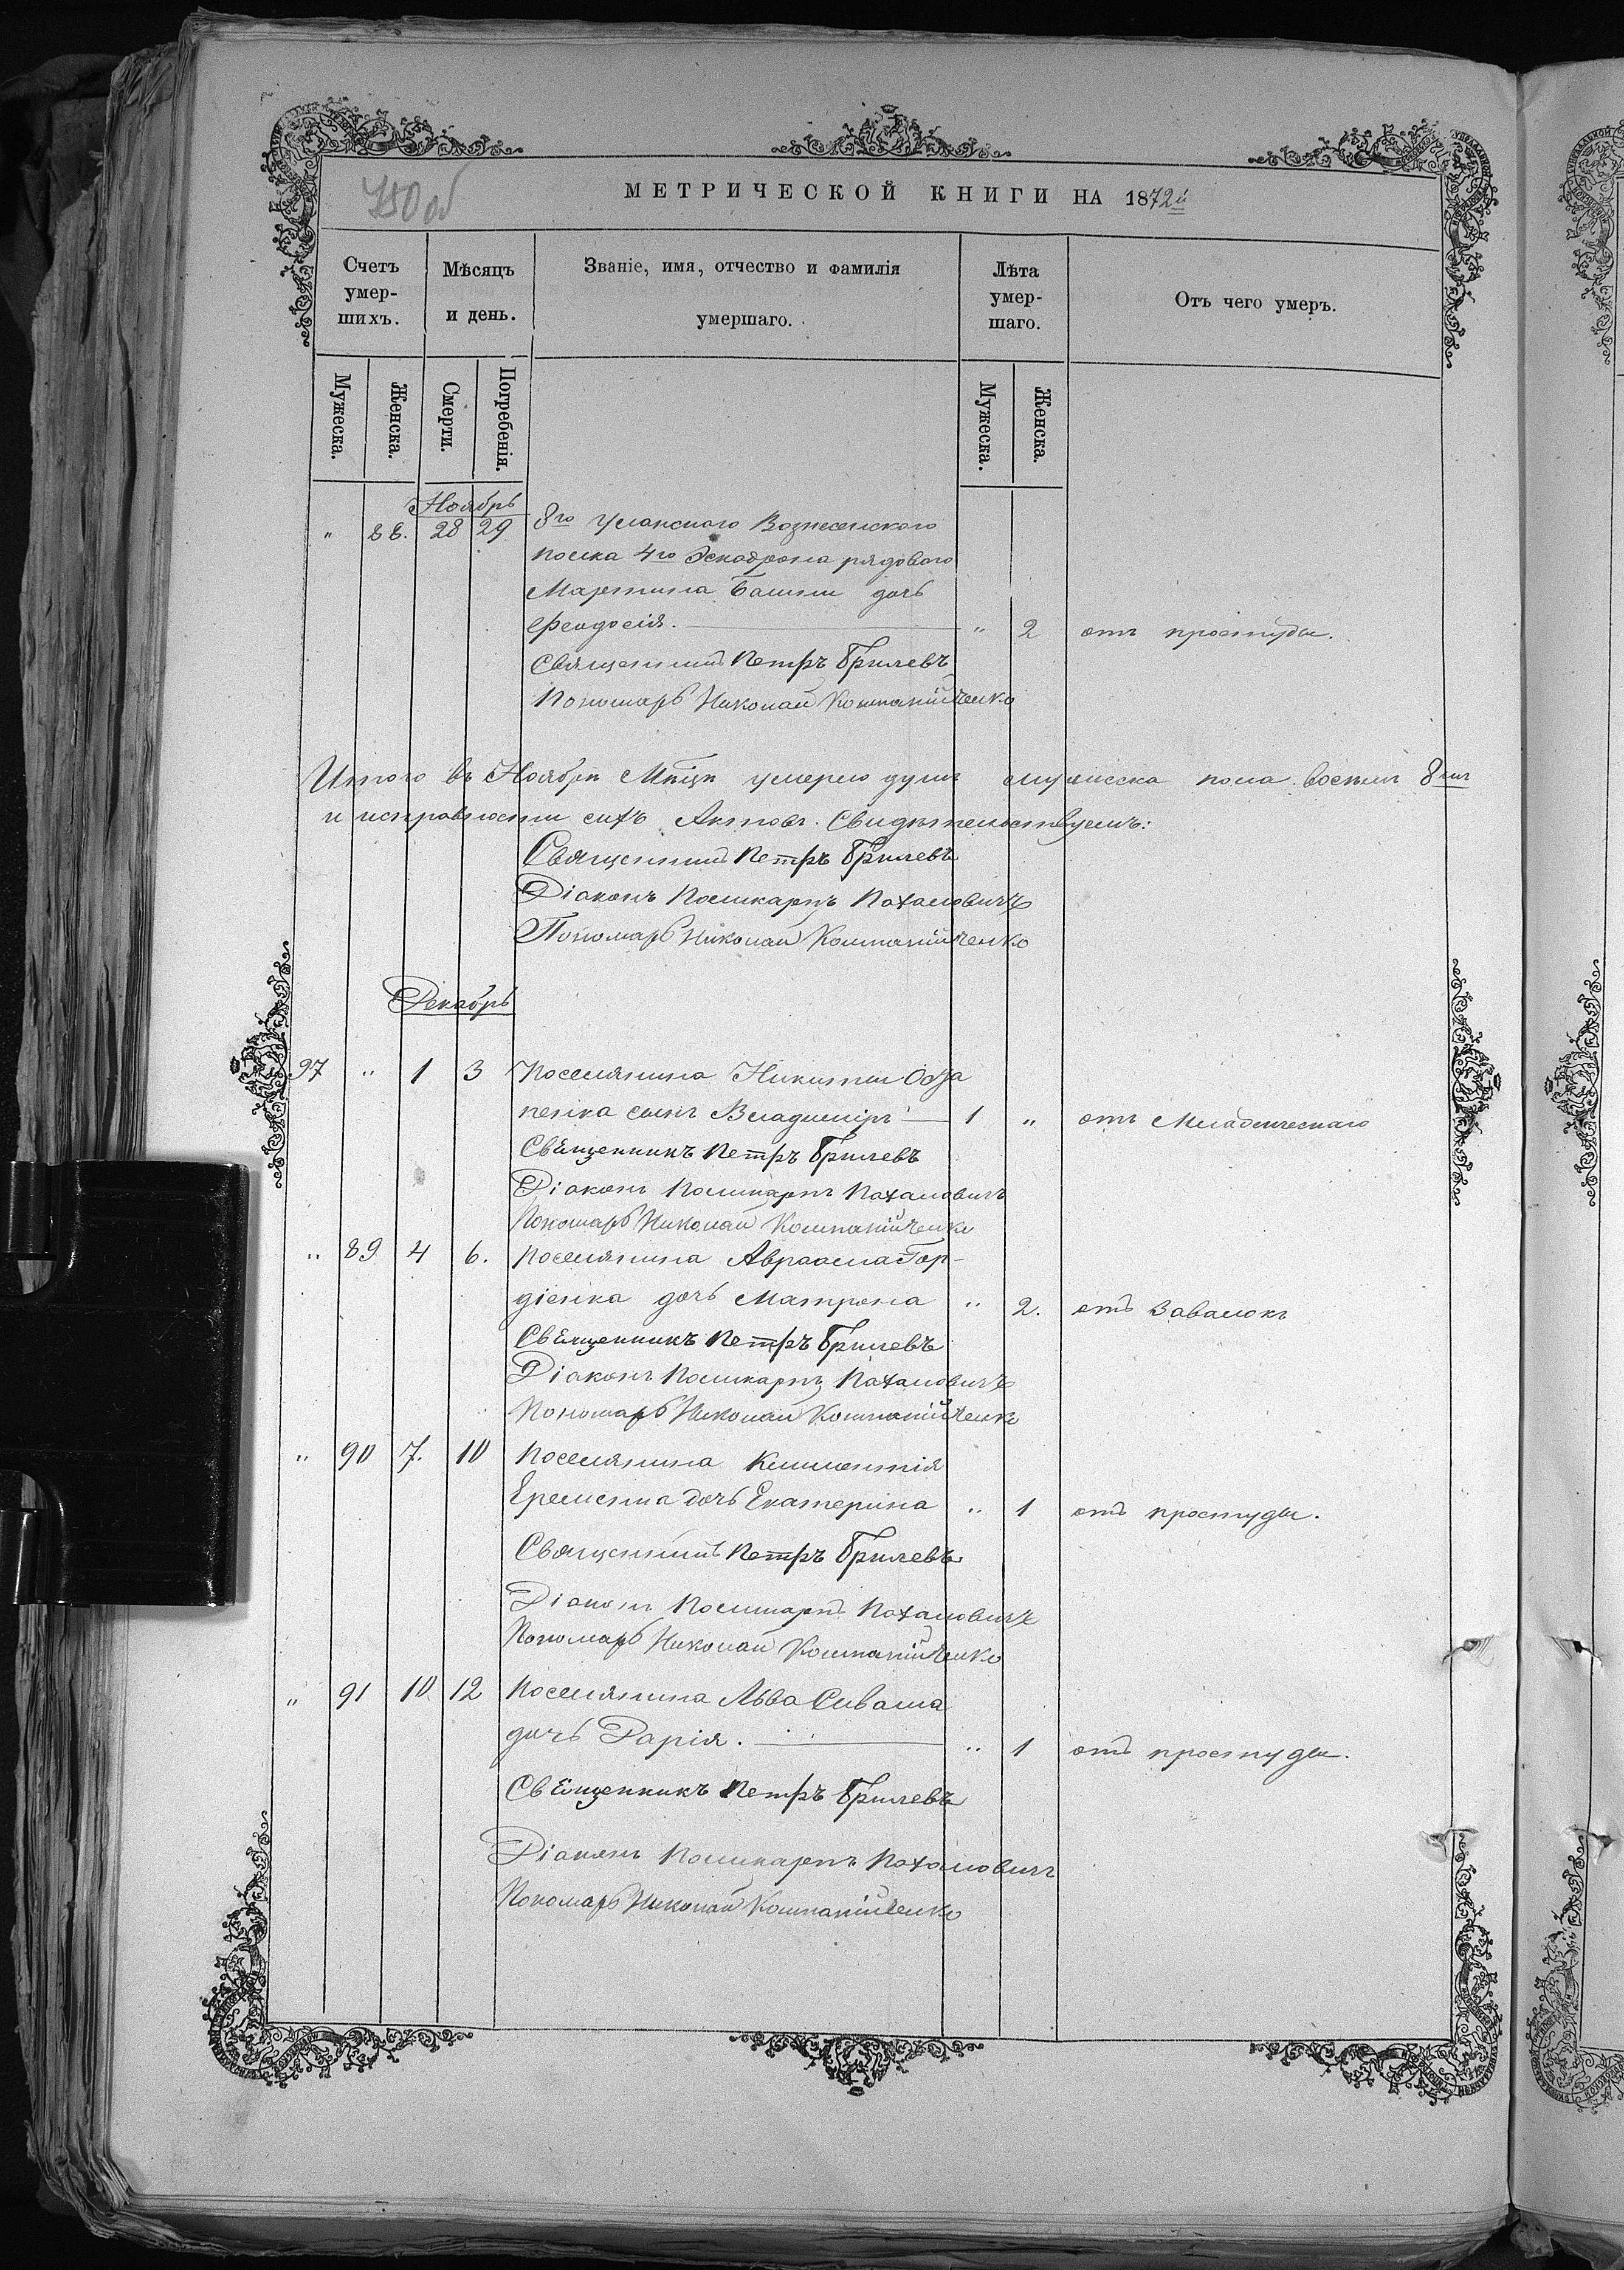 750 об
МЕТРИЧЕСКОЙ КНИГИ НА 1872й
Счетъ умер- шихъ.
Мѣсяцъ и день.
Званіе, имя, отчество и фамилія умершаго.
Лѣта умер- шаго.
Отъ чего умеръ.
Мужеска.
Женска.
Смерти.
Погребенія.
Мужеска.
Женска.
Ноябрь
" 88. 28 29 8го Уланскаго Вознесенскаго
полка 4го Эскадрона рядового
Мартина дочь
Феодосія. " 2 отъ простуды.
Священникъ Петръ Брилевъ
Пономарь Николай Компанійченко
Итого въ Ноябрѣ Мѣцѣ умерло душъ мужеска пола восемь 8мь
и исправности сихъ Актовъ Свидѣтельствуемъ:
Священникъ Петръ Брилевъ
Діаконъ Поликарпъ Пахаловичъ
Пономарь Николай Компанійченко
Декабрь
97 " 1 3 Поселянина Никиты
пенка сынъ Владиміръ 1 " отъ Младенческаго
Священникъ Петръ Брилевъ
Діаконъ Поликарпъ Пахаловичъ
Пономарь Николай Компанійченко
" 89 4 6. Поселянина Авраама Гор-
діенка дочь Матрона " 2. отъ Завалокъ
Священникъ Петръ Брилевъ
Діаконъ Поликарпъ Пахаловичъ
Пономарь Николай Компанійченко
" 90 7. 10 Поселянина Климентія
Еременка дочь Екатерина " 1 отъ простуды.
Священникъ Петръ Брилевъ
Діаконъ Поликарпъ Пахаловичъ
Пономарь Николай Компанійченко
" 91 10 12 Поселянина Льва Сиваша
дочь Дарія. " 1 отъ простуды.
Священникъ Петръ Брилевъ
Діаконъ Поликарпъ Пахаловичъ
Пономарь Николай Компанійченко